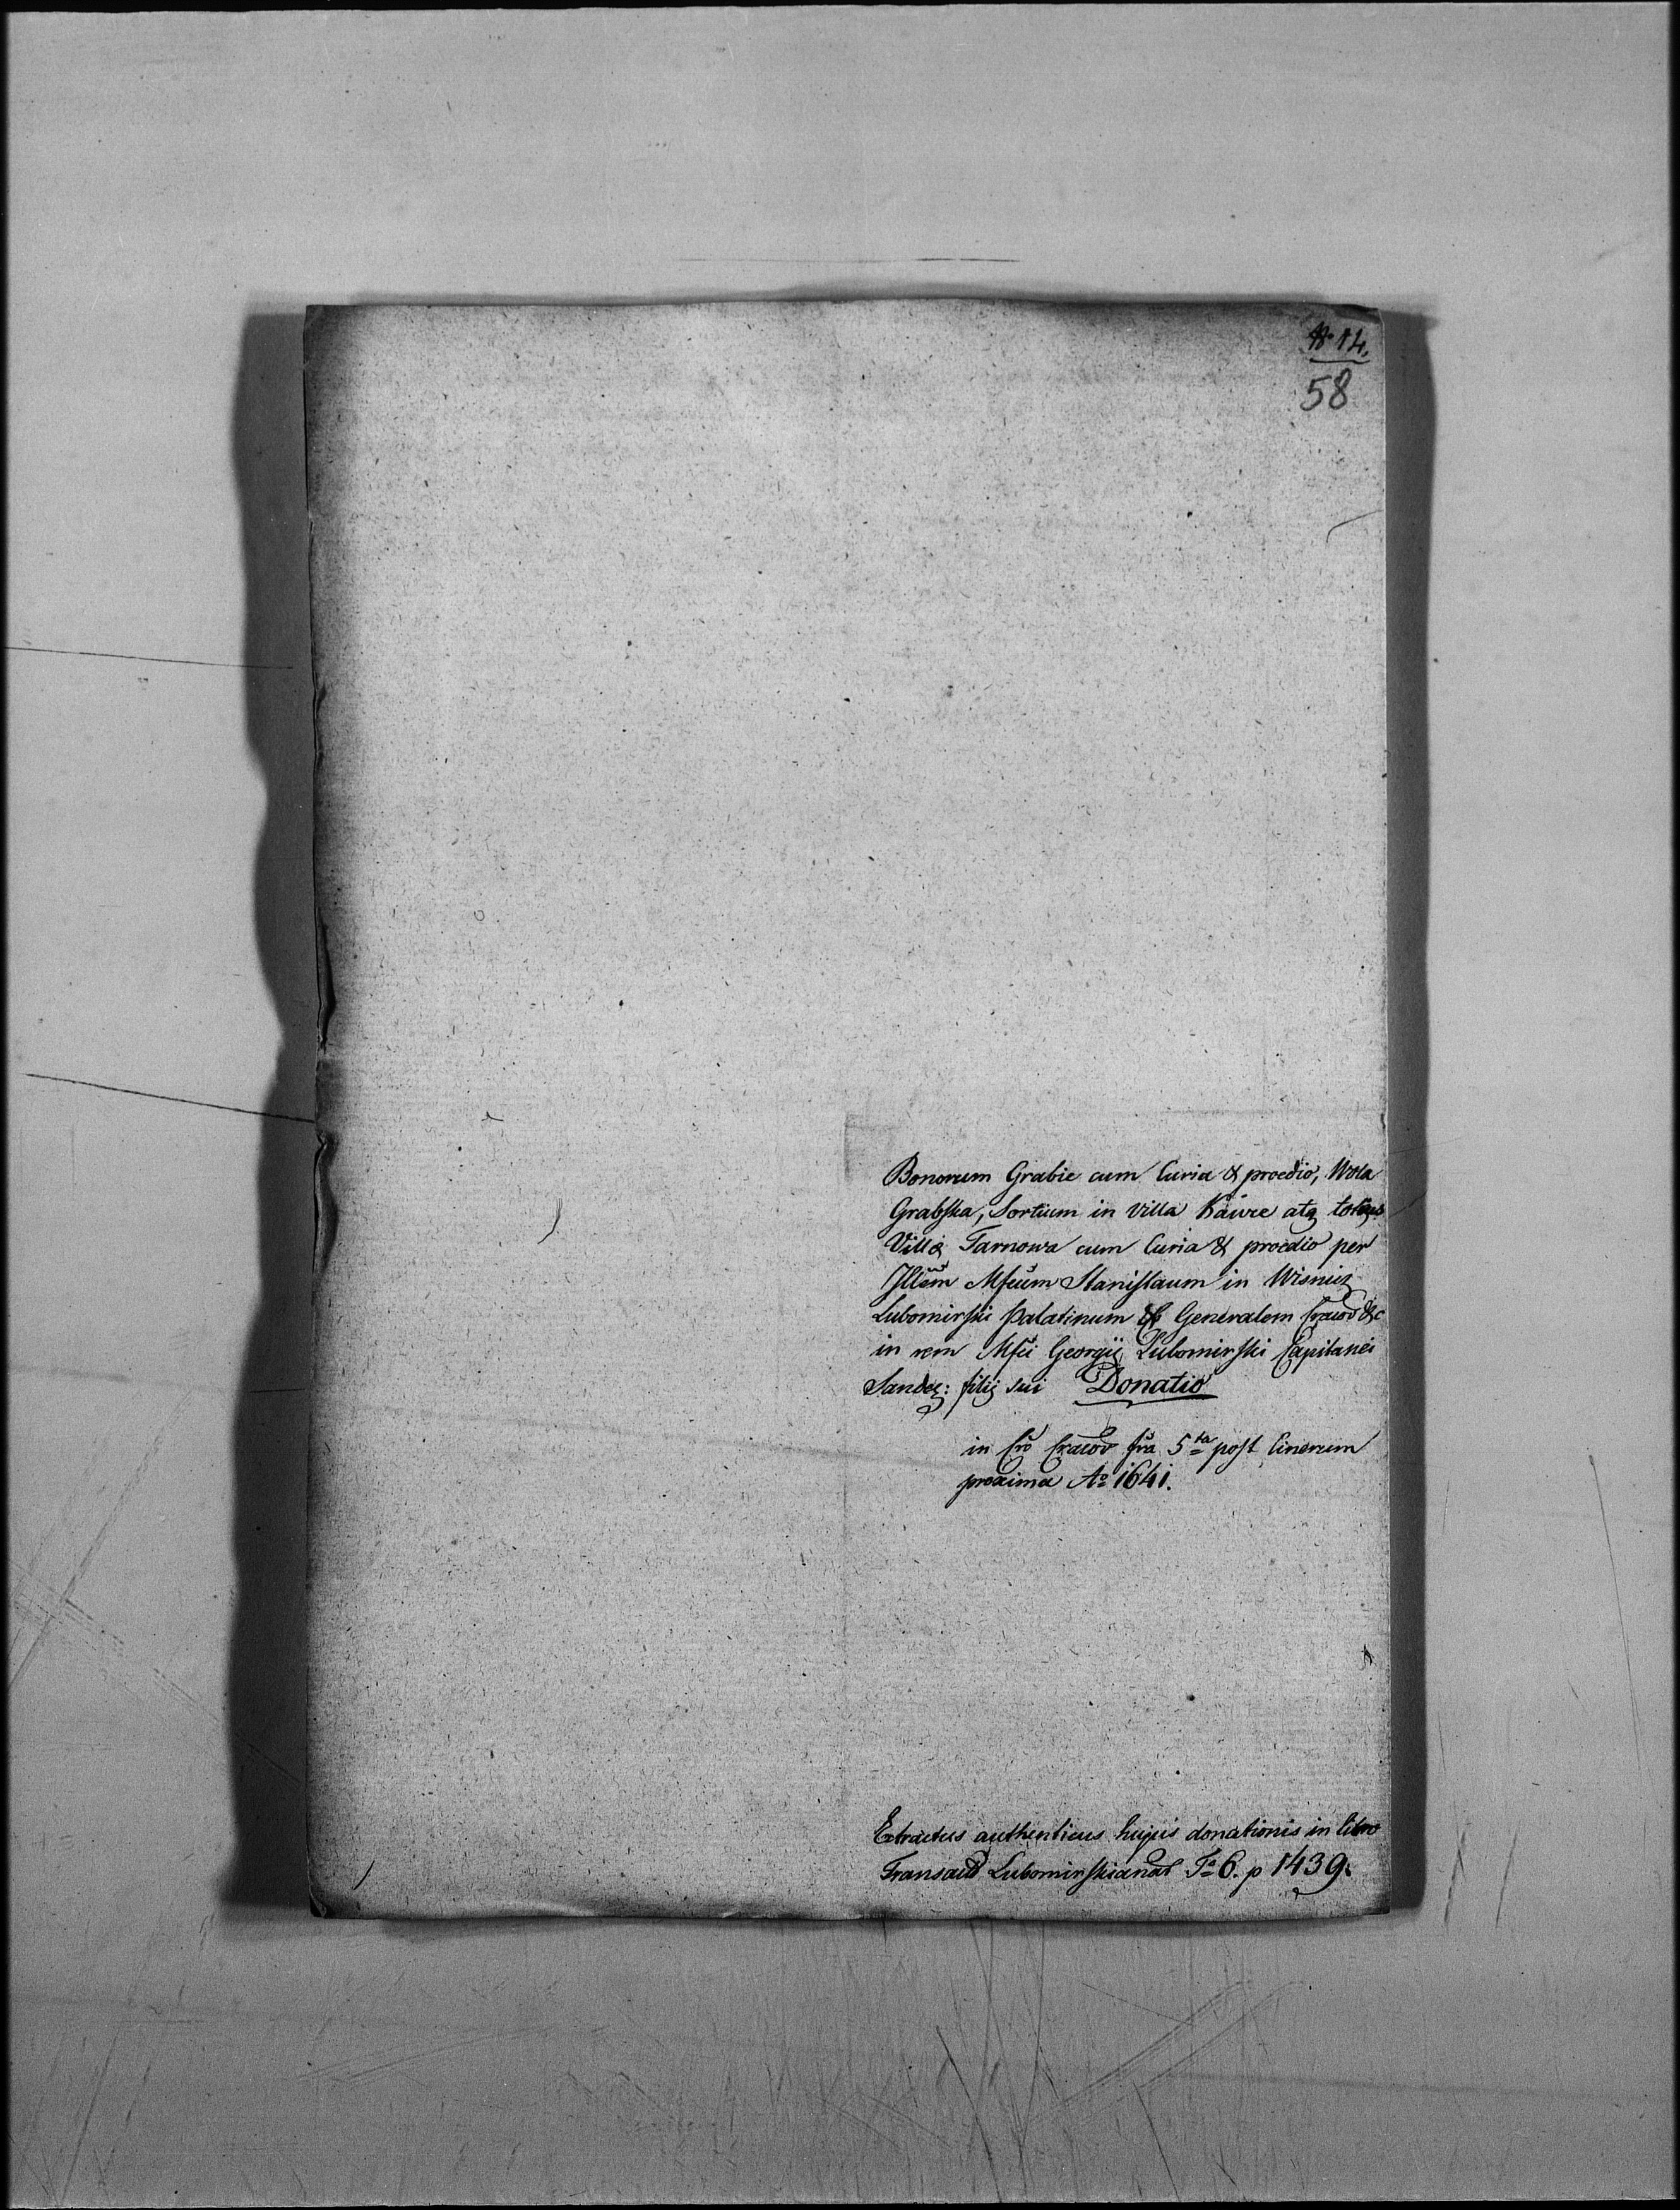 N 14.
58
Bonorum Grabie cum Curia & proedio, Wola
Grabska, Sortium in villa Kawre atq totius
Villæ Tarnowa cum Curia & proedio per
Illem Mfcum Stanislaum in Wisnicz
Lubomirski Palatinum & Generalem Cracov &c
in rem Mfci Georgii Lubomirski Capitanei
Sandez: filij sui Donatio
in Cro Cracov fra 5ta post Cinerum
proxima Ao 1641.
Extractus authenticus hujus donationis in libro
Transact Lubomirskianar To 6. p 1439.